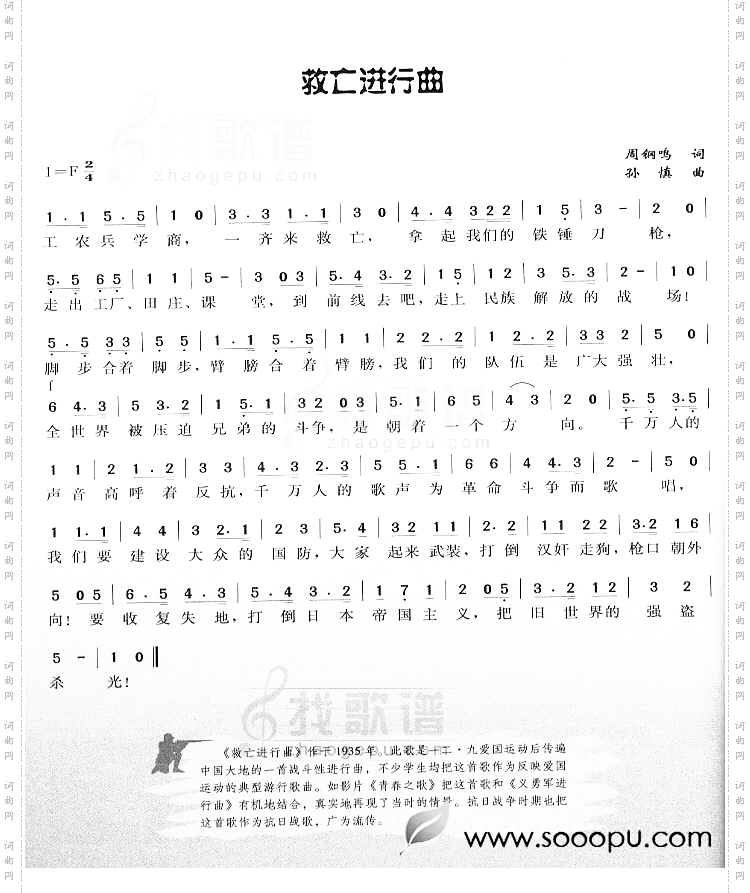 救亡进行曲
1=F 2/4
周钢鸣 词
孙 慎 曲
1.1 5.5 | 1 0 | 3.3 1.1 | 3 0 | 4.4 322 | 1 5 | 3 – | 2 0
工农兵学商，一齐来救亡，拿起我们的铁锤刀枪，
5.5 65 | 1 1 | 5 – | 3 03 | 5.4 3.2 | 1 5 | 1 2 | 3 5.3 | 2 – | 1 0
走出工厂、田庄、课堂，到前线去吧，走上民族解放的战场！
5.5 33 | 5 5 | 1.1 5.5 | 1 1 | 2 2.2 | 1 2.2 | 3 3 2 | 5 0
脚步合着脚步，臂膀合着臂膀，我们的队伍是广大强壮，
f
6 4.3 | 5 3.2 | 1 5.1 | 32 03 | 5.1 | 6 5 | 4 3 | 2 0 | 5.5 3.5
全世界被压迫兄弟的斗争，是朝着一个方向。千万人的
1 1 | 2 1.2 | 3 3 | 4.3 2.3 | 5 5.1 | 6 6 | 4 4.3 | 2 – | 5 0
声音高呼着反抗，千万人的歌声为革命斗争而歌唱，
1 1.1 | 4 4 | 3 2.1 | 2 3 | 5.4 | 32 11 | 2.2 | 11 22 | 3.2 16
我们要建设大众的国防，大家起来武装，打倒汉奸走狗，枪口朝外
5 05 | 6.5 4.3 | 5.4 3.2 | 1 7 1 | 2 05 | 3.2 12 | 3 2
向！要收复失地，打倒日本帝国主义，把旧世界的强盗
5 – | 1 0 ‖
杀光！
《救亡进行曲》作于1935年。此歌是一二·九爱国运动后传遍
中国大地的一首战斗性进行曲，不少学生均把这首歌作为反映爱国
运动的典型游行歌曲。如影片《青春之歌》把这首歌和《义勇军进
行曲》有机地结合，真实地再现了当时的情景。抗日战争时期也把
这首歌作为抗日战歌，广为流传。
找歌谱
zhaogepu.com
www.sooopu.com
词曲网